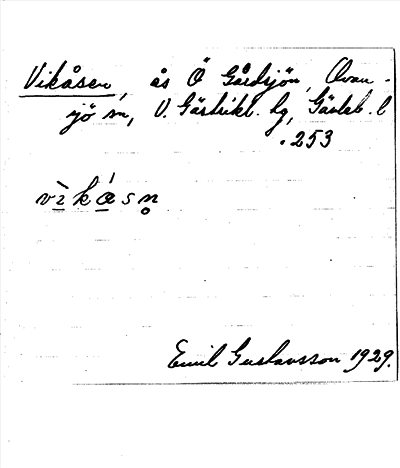 Vikåsen, ås Ö Gårdsjön, Ovan-
sjö sn, V. Gästrikl. hg, Gävleb. l
.253
vìkásn̥
Emil Gustavsson 1929.